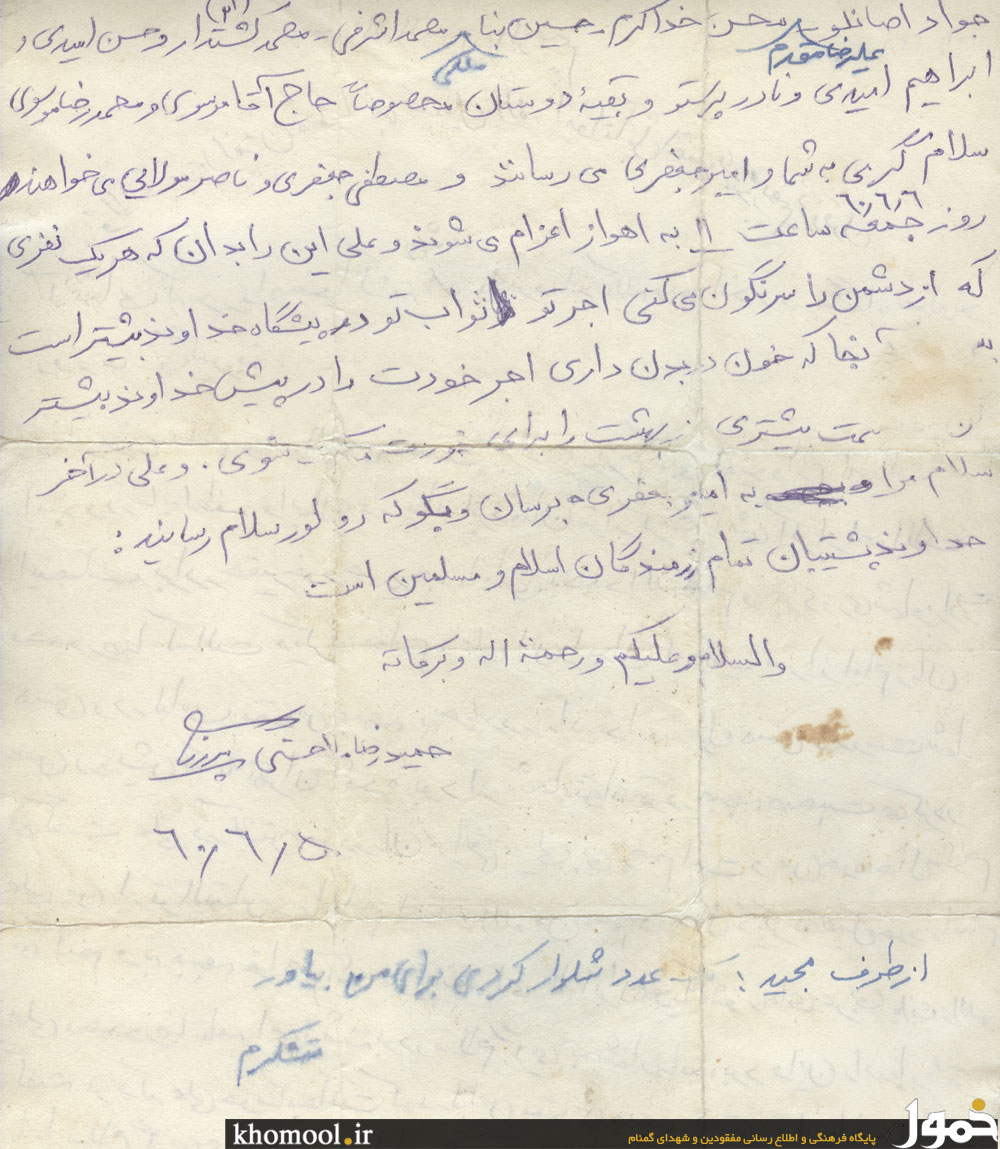 جواد اصانلو محسن خداکرم - حسین بنا محمد اشرفی - محمد کشتدار (۲۱) و حسن امیدی و
علیرضا مقدم
ملکی
ابراهیم امیدی و نادر پرستو و بقیهٔ دوستان مخصوصاً حاج آقا موسوی و محمدرضا موسوی
سلام گرمی به شما و امیر جعفری می رسانند و مصطفی جعفری و ناصر مولایی می خواهند
روز جمعه ۶۰/۶/۶ ساعت ۱۱ به اهواز اعزام می شوند و علی این را بدان که هر یک نفری
که از دشمن را سرنگون می کنی اجر تو ثواب تو در پیشگاه خداوند بیشتر است
آنجا که خون در بدن داری اجر خودت را در پیش خداوند بیشتر
بیشتری بهشت را برای شوی. و علی در آخر
سلام مرا به امیر جعفری برسان و بگو که سلام رسانید:
خداوند پشتیبان تمام رزمندگان اسلام و مسلمین است
والسلام و علیکم و رحمة اله و برکاته
حمیدرضا
۶۰/۶/۵
از طرف مجید: عدد شلوار کردی برای من بیاور
متشکرم
خمول
پایگاه فرهنگی و اطلاع رسانی مفقودین و شهدای گمنام
khomool.ir